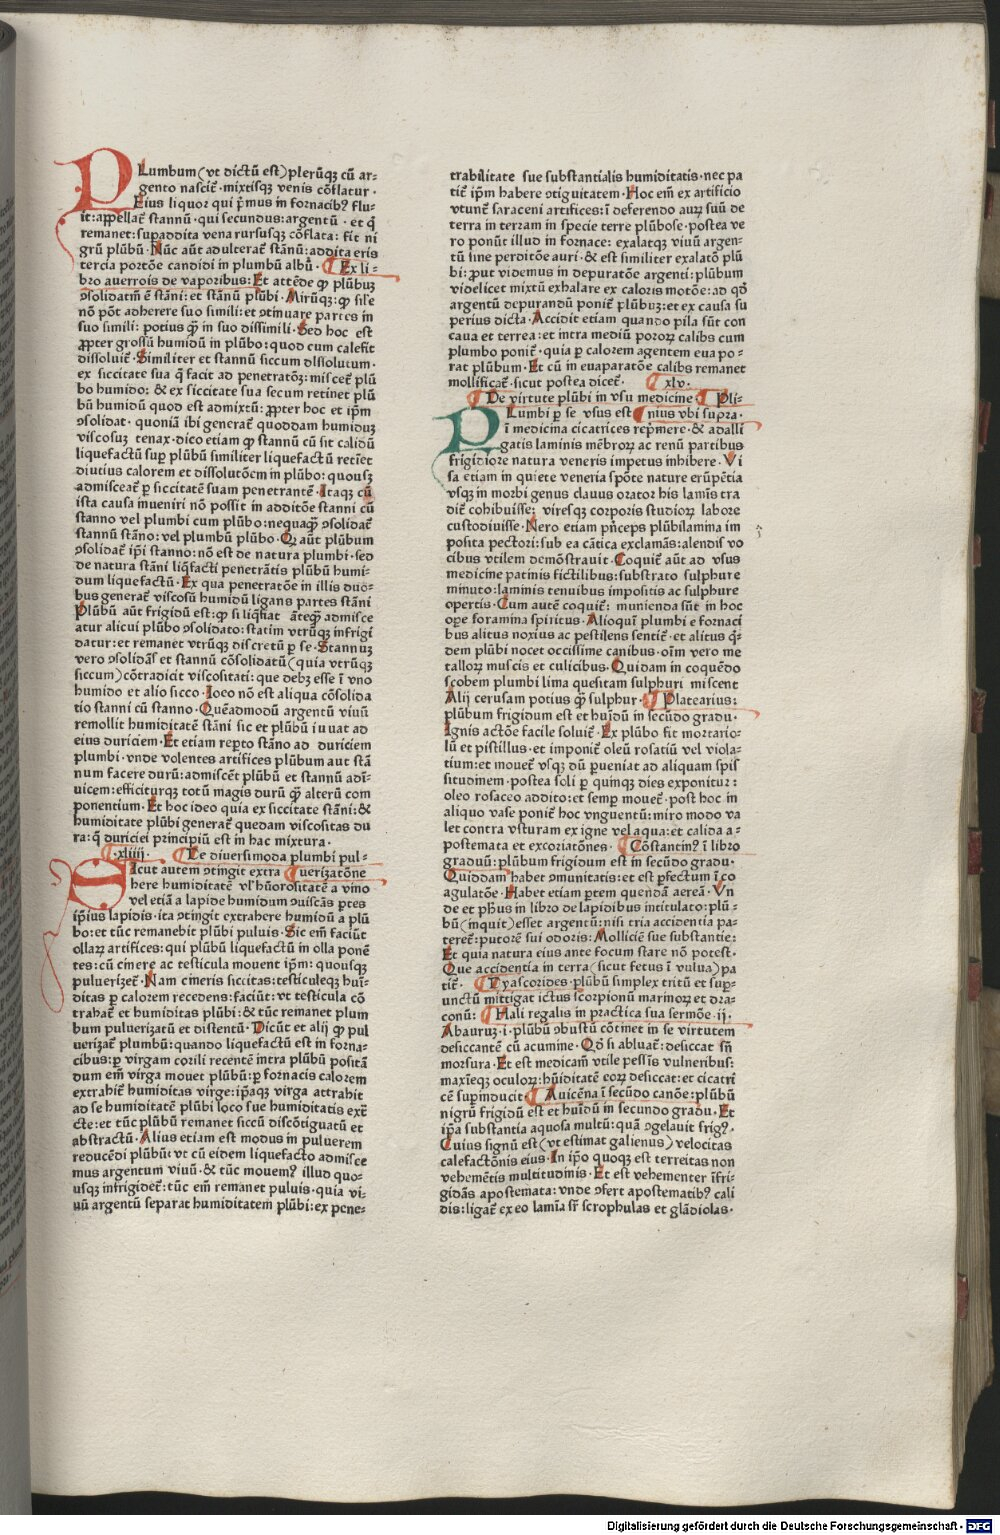 PLumbum (vt dictū est) plerūqꝫ cū ar⸗
gento nascit̄ · mixtisqꝫ venis cōflatur ·
Eius liquor qui p̄mus in fornacibꝰ flu⸗
it: appellat̄ stannū · qui secundus: argentū · et q̄
remanet: supaddita vena rursusqꝫ cōflata: fit ni
grū plūbū · Nūc aūt adulterat̄ stānū: addita eris
tercia portōe candidi in plumbū albū · ¶ Ex li⸗
bro auerrois de vaporibus: Et attēde qꝙ plūbuꝫ
ꝯsolidatm̄ ē stāni: et stānū plūbi · Mirūqꝫ: qꝙ sil'e
nō pōt adherere suo simili: et ꝯtinuare partes in
suo simili: potius qꝫ in suo dissimili · Sed hoc est
ꝓpter grossū humidū in plūbo: quod cum calefit
dissoluit̄ · Similiter et stannū siccum dissolutum ·
ex siccitate sua q̄ facit ad penetratōꝫ: miscet̄ plū
bo humido: & ex siccitate sua secum retinet plū
bū humidū quod est admixtū: ꝓpter hoc et ip̄m
ꝯsolidat · quoniā ibi generat̄ quoddam humiduꝫ
viscosuꝫ tenax · dico etiam qꝙ stannū cū sit calidū
liquefactū sup̄ plūbū similiter liquefactū retīet
diutius calorem et dissolutōem in plūbo: quousqꝫ
admisceat̄ p̄ siccitatē suam penetrantē · Itaqꝫ cū
ista causa inueniri nō possit in additōe stanni cū
stanno vel plumbi cum plūbo: nequaqꝫ ꝯsolidat̄
stannū stāno: vel plumbū plūbo · Qꝙ aūt plūbum
ꝯsolidat̄ ip̄i stanno: nō est de natura plumbi · sed
de natura stāni liq̄facti penetrātis plūbū humi⸗
dum liquefactū · Ex qua penetratōe in illis duo⸗
bus generat̄ viscosū humidū ligans partes stāni
Plūbū aūt frigidū est: qꝙ si liq̄fiat āteqꝫ admisce
atur alicui plūbo ꝯsolidato: statim vtrūqꝫ infrigi
datur: et remanet vtrūqꝫ discretū p̄ se · Stannuꝫ
vero ꝯsolidās et stannū cōsolidatū (quia vtrūqꝫ
siccum) cōtradicit viscositati: que debꝫ esse ī vno
humido et alio sicco · Ioco nō est aliqua cōsolida
tio stanni cū stanno · Quēadmodū argentū viuū
remollit humiditatē stāni sic et plūbū iuuat ad
eius duriciem · Et etiam rep̄to stāno ad duriciem
plumbi · vnde volentes artifices plūbum aut stā
num facere durū: admiscēt plūbū et stannū adī⸗
uicem: efficiturqꝫ totū magis durū qꝫ alterū com
ponentium · Et hoc ideo quia ex siccitate stāni: &
humiditate plūbi generat̄ quedam viscositas du
ra: q̄ duriciei principiū est in hac mixtura ·
¶ ·xliiij· ¶ De diuersimoda plumbi pul⸗
SIcut autem ꝯtingit extra ¶ uerizatōne
here humiditatē vl' hūorositatē a vino
vel etiā a lapide humidum ꝯuiscās p̄tes
ip̄ius lapidis · ita ꝯtingit extrahere humidū a plū
bo: et tūc remanebit plūbi puluis · Sic em̄ faciūt
ollaꝝ artifices: qui plūbū liquefactū in olla ponē
tes: cū cinere ac testicula mouent ip̄m: quousqꝫ
pulverizet̄ · Nam cineris siccitas: testiculeqꝫ huī⸗
ditas p̄ calorem recedens: faciūt: vt testicula cō
trahat̄ et humiditas plūbi: & tūc remanet plum
bum puluerizatū et distentū · Dicūt et alij qꝙ pul
uerizat̄ plumbū: quando liquefactū est in forna⸗
cibus: p̄ virgam corili recentē intra plūbū positā
dum em̄ virga mouet plūbū: p̄ fornacis calorem
extrahit̄ humiditas virge: ip̄aqꝫ virga attrahit
ad se humiditatē plūbi loco sue humiditatis exē
cte: et tūc plūbū remanet siccū discōtiguatū et
abstractū · Alius etiam est modus in puluerem
reducēdi plūbū: vt cū eidem liquefacto admisce
mus argentum viuū · & tūc mouemꝰ illud quo⸗
usqꝫ infrigideт̄: tūc em̄ remanet puluis · quia vi⸗
uū argentū separat humiditatem plūbi: ex pene⸗
trabilitate sue substantialis humiditatis · nec pa
tit̄ ip̄m habere ꝯtiguitatem · Hoc em̄ ex artificio
vtunt̄ saraceni artifices: ī deferendo auꝝ suū de
terra in terram in specie terre plūbose · postea ve
ro ponūt illud in fornace: exalatqꝫ viuū argen⸗
tū sine perditōe auri · & est similiter exalatō plū
bi: ꝓut videmus in depuratōe argenti: plūbum
videlicet mixtū exhalare ex caloris motōe: ad qd̄
argentū depurandū ponit̄ plūbuꝫ: et ex causa su
perius dicta · Accidit etiam quando pila sūt con
caua et terrea: et intra mediū poroꝝ calibs cum
plumbo ponit̄ · quia p̄ calorem agentem eua po⸗
rat plūbum · Et cū in euaparatōe calibs remanet
mollificat̄ · sicut postea dicet̄ · ¶ xlv ·
¶ De virtute plūbi in vsu medicine · ¶ Pli⸗
PLumbi p̄ se vsus est ¶ nius vbi supra ·
ī medicina cicatrices rep̄mere · & adalli
gatis laminis mēbroꝝ ac renū partibus
frigidiore natura veneris impetus inhibere · Vi
sa etiam in quiete veneria spōte nature erūpētia
vsqꝫ in morbi genus clauus orator his lamīs tra
dit̄ cohibuisse: viresqꝫ corporis studioꝝ labore
custodiuisse · Nero etiam pn̄ceps plūbi lamina im
posita pectori: sub ea cātica exclamās: alendis vo
cibus vtilem demōstrauit · Coquit̄ aūt ad vsus
medicine patinis fictilibus: substrato sulphure
minuto: laminis tenuibus impositis ac sulphure
opertis · Cum autē coquit̄: munienda sūt in hoc
ope foramina spiritus · Alioquī plumbi e fornaci
bus alitus noxius ac pestilens sentit̄ · et alitus q̄⸗
dem plūbi nocet occissime canibus · oīm vero me
talloꝝ muscis et culicibus · Quidam in coquēdo
scobem plumbi lima quesitam sulphuri miscent
Alij cerusam potius qꝫ sulphur · ¶ Platearius:
plūbum frigidum est et huīdū in secūdo gradu ·
Ignis actōe facile soluit̄ · Ex plūbo fit mortario⸗
lū et pistillus · et imponit̄ oleū rosatiū vel viola⸗
tium: et mouet̄ vsqꝫ dū p̄ueniat ad aliquam spis
situdinem · postea soli p̄ quinqꝫ dies exponitur:
oleo rosaceo addito: et semp̄ mouet̄ · post hoc in
aliquo vase ponit̄ hoc vnguentū: miro modo va
let contra vsturam ex igne vel aqua: et calida a⸗
postemata et excoriatōnes · ¶ Cōstantinꝰ ī libro
graduū: plūbum frigidum est in secūdo gradu ·
Quiddam habet ꝯmunitatis: et est p̄fectum ī co
agulatōe · Habet etiam p̄tem quendā aereā · Vn
de et ph̄us in libro de lapidibus intitulato: plū⸗
bū (inquit) esset argentū: nisi tria accidentia pa⸗
teret̄: putorē sui odoris: Molliciē sue substantie:
Et quia natura eius ante focum stare nō potest ·
Que accidentia in terra (sicut fetus ī vulua) pa
tit̄ · ¶ Dyascorides · plūbū simplex tritū et sup̄⸗
unctū mittigat ictus scorpionū marinoꝝ et dra⸗
conū: ¶ Hali regalis in practica sua sermōe · ij ·
Abauruꝫ · i · plūbū ꝯbustū cōtinet in se virtutem
desiccantē cū acumine · Qd̄ si abluat̄: desiccat sn̄
morsura · Et est medicam̄ vtile pessīs vulneribus:
maxīeqꝫ oculoꝝ: hūiditatē eoꝝ desiccat: et cicatri
cē sup̄inducit · ¶ Auicēna ī secūdo canōe: plūbū
nigrū frigidū est et huīdū in secundo gradu · Et
ip̄a substantia aquosa multū: quā ꝯgelauit frigꝰ ·
Cuius signū est (vt estimat galienus) velocitas
calefactōnis eius · In ip̄o quoqꝫ est terreitas non
vehemētis multitudinis · Et est vehementer īfri⸗
gidās apostemata: vnde ꝯfert apostematibꝰ cali
dis: ligat̄ ex eo lamīa sr̄ scrophulas et glādiolas ·
Digitalisierung gefördert durch die Deutsche Forschungsgemeinschaft - DFG